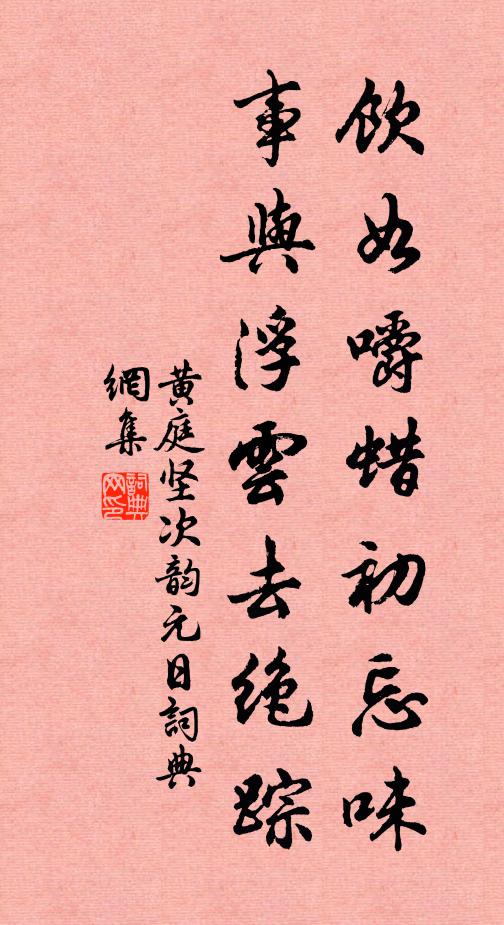 飲如嚼蜡初忘味
事與浮雲去絶踪
黄庭坚次韵元日詞典
網集
詞典
网印